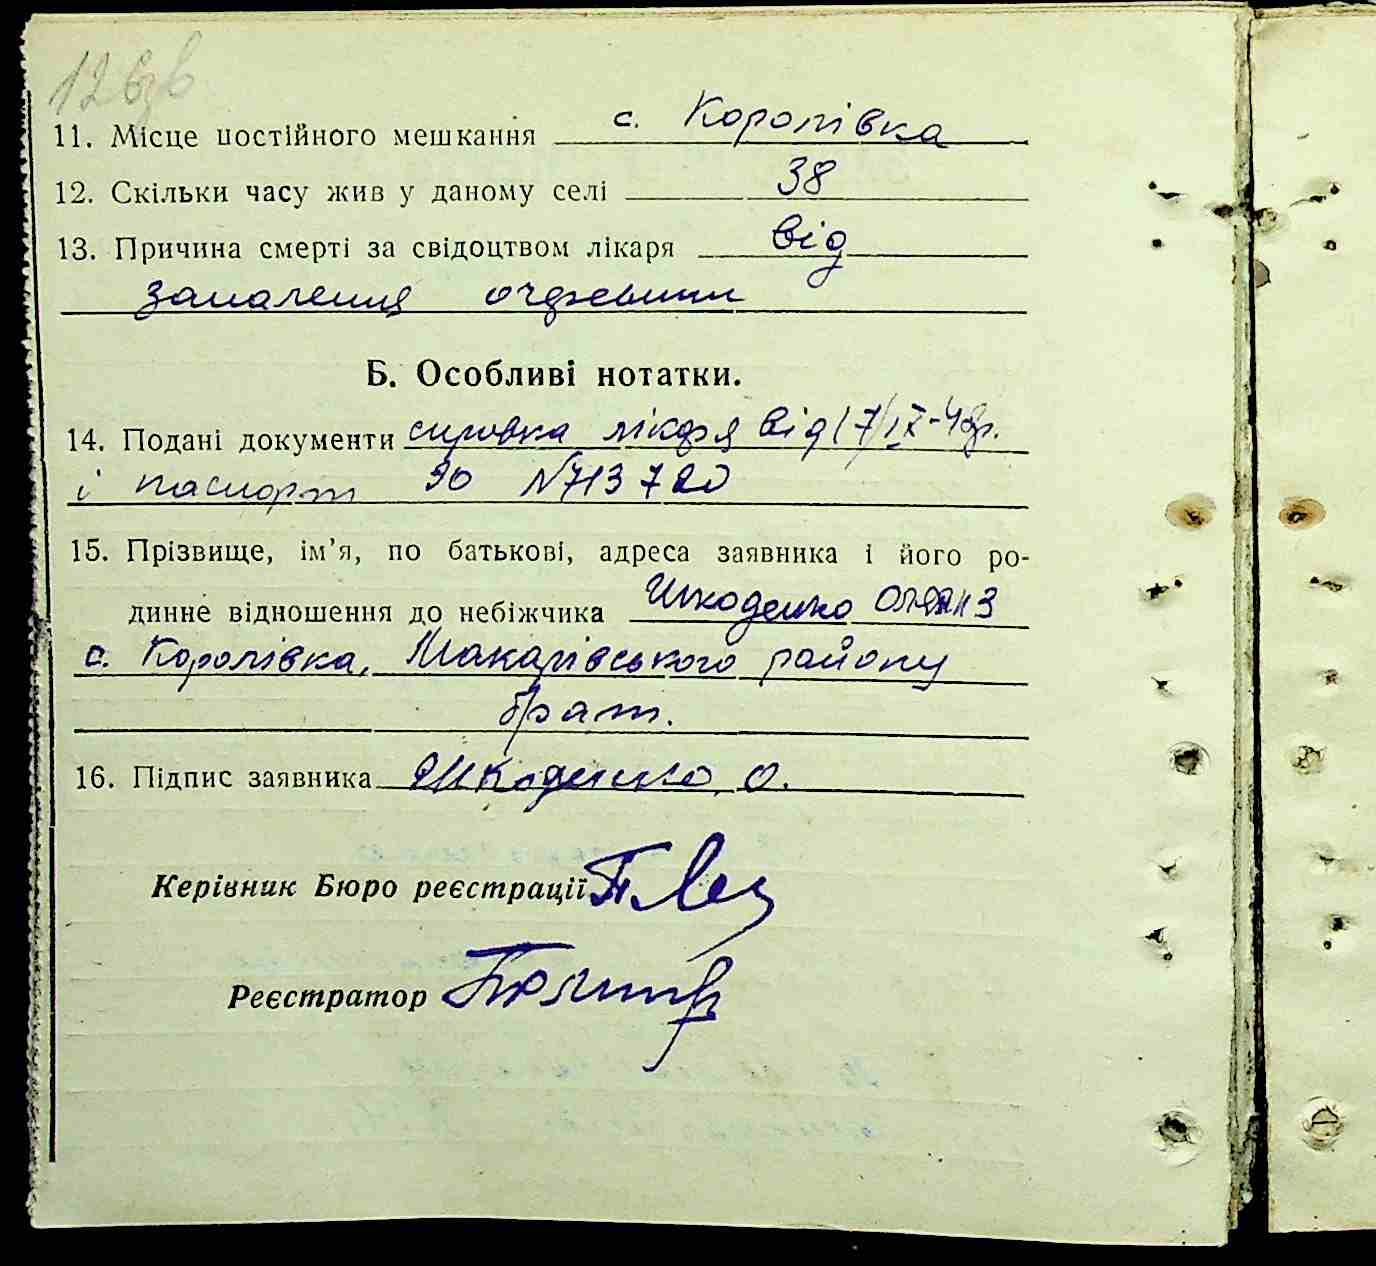 12 зв
11. Місце постійного мешкання с. Королівка
12. Скільки часу жив у даному селі 38
13. Причина смерті за свідоцтвом лікаря від
запалення очревини
Б. Особливі нотатки.
14. Подані документи справка лікаря від 17/IX-42р.
і паспорт № 713720
15. Прізвище, ім’я, по батькові, адреса заявника і його ро-
динне відношення до небіжчика Шкоденко
с. Королівка, Макарівського району
брат.
16. Підпис заявника Шкоденко О.
Керівник Бюро реєстрації
Реєстратор